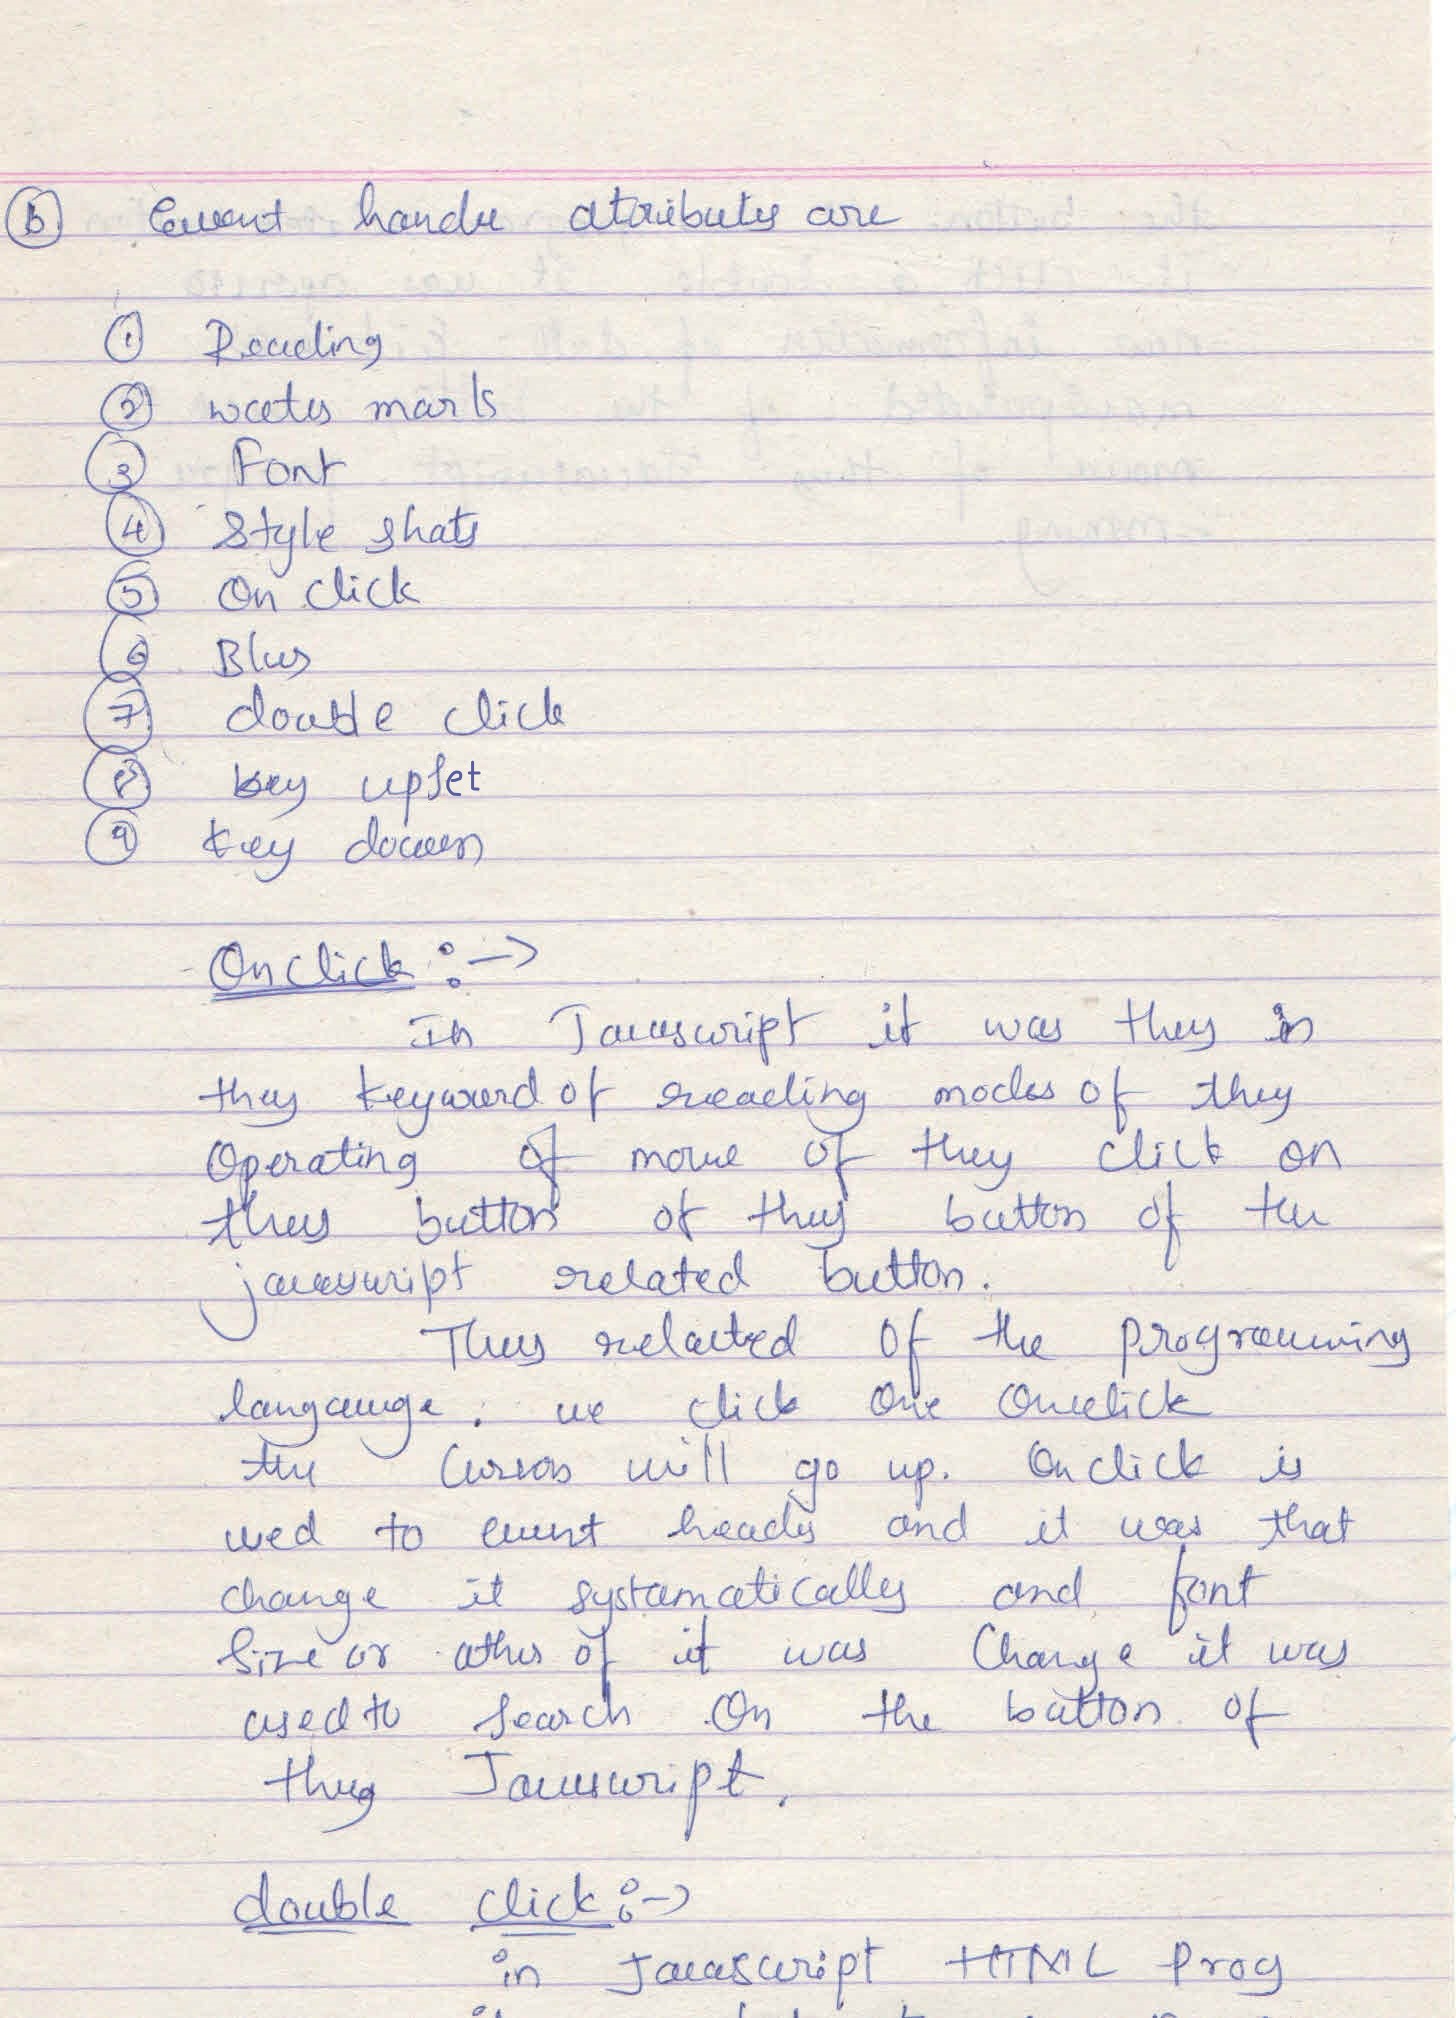 b Event handle atributes are
1 Reading
2 water marks
3 Font
4 Style shats
5 On click
6 Blur
7 double click
8 key upset
9 key down
Onclick :->
In Javascript it was they in
they keyword of reading modes of they
Operating of move of they click on
they button of they button of the
javascript related button.
They relacted of the programming
langauge. we click One Onclick
the Cursor will go up. Onclick is
used to event heads and it was that
change it systamatically and font
Size or other of it was Change it was
used to Search On the button of
they Javascript.
double click :->
in Javascript HTML Prog